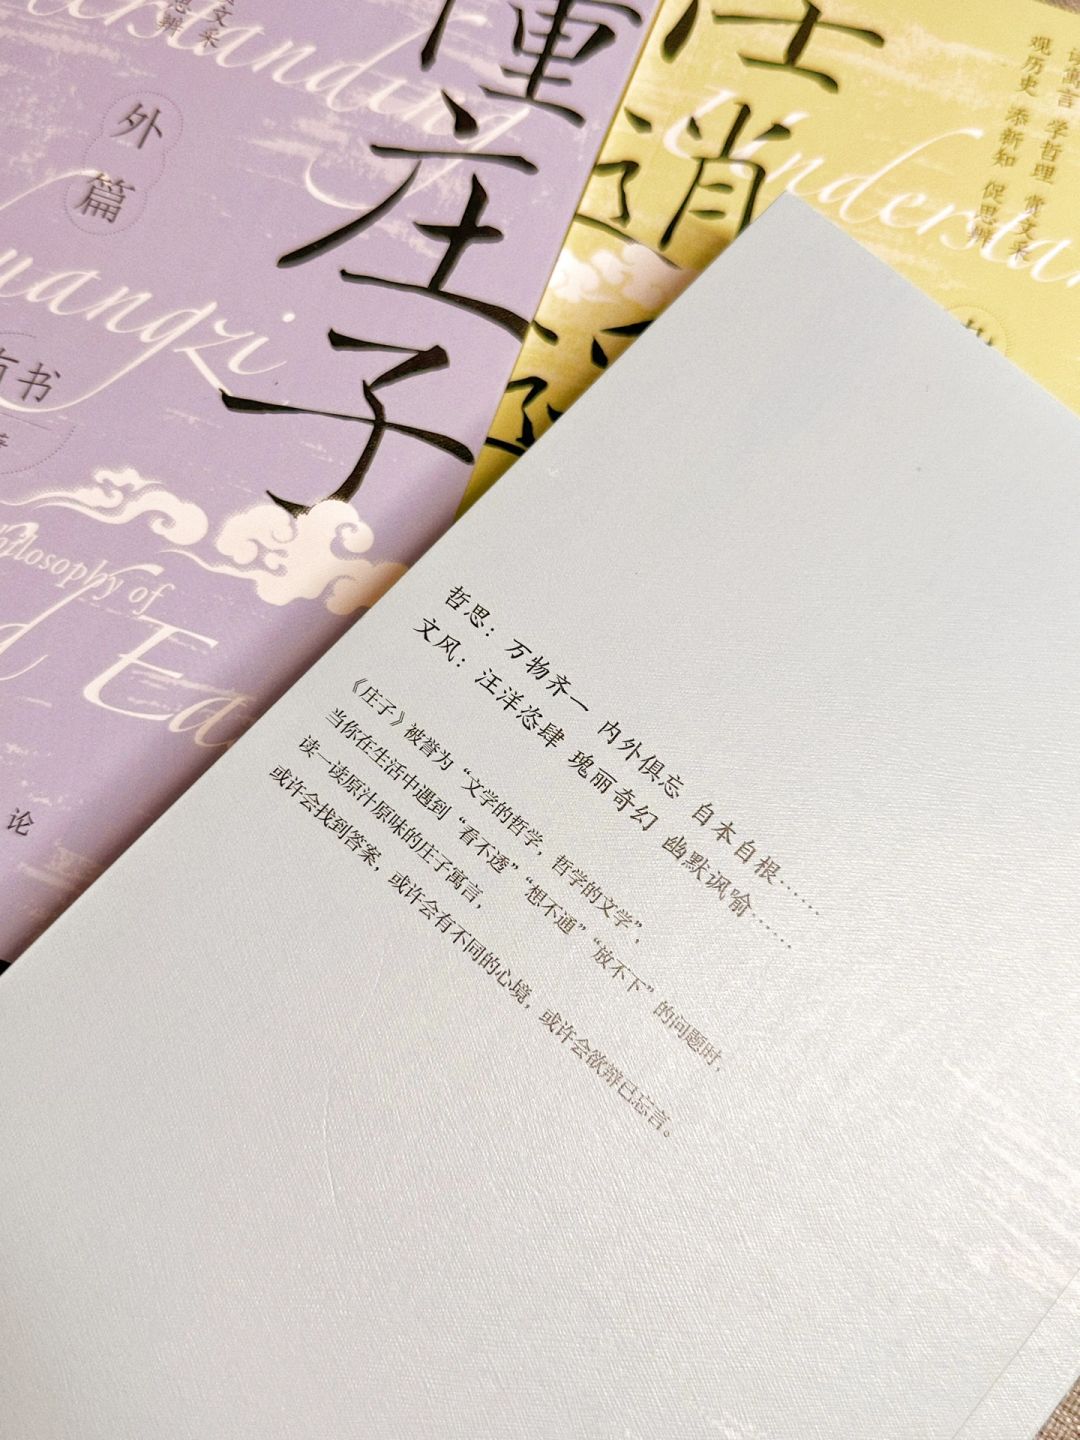 文采
思辨
外
篇
懂庄子
任逍遥
Understanding
Zhuangzi
有书
Philosophy of
论
读寓言 学哲理 赏文采
观历史 添新知 促思辨
哲思：万物齐一 内外俱忘 自本自根……
文风：汪洋恣肆 瑰丽奇幻 幽默讽喻……
《庄子》被誉为“文学的哲学，哲学的文学”，
当你在生活中遇到“看不透”“想不通”“放不下”的问题时，
读一读原汁原味的庄子寓言，
或许会找到答案，或许会有不同的心境，或许会欲辩已忘言。